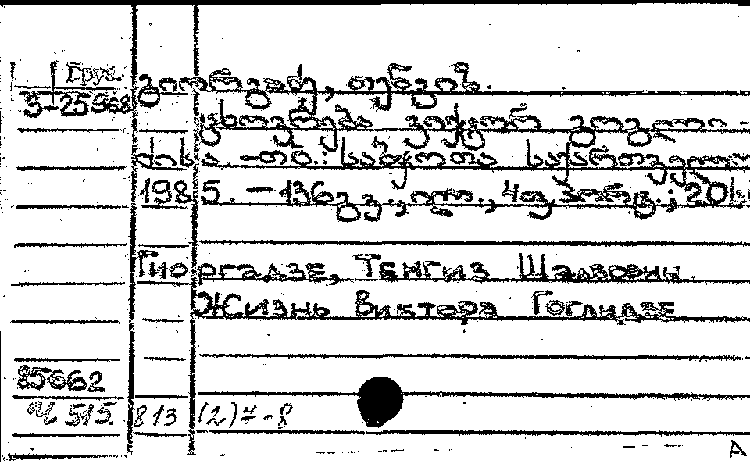 Груз.
3-25968 გიორგაძე, თენგიზ.
ცხოვრება ვიქტორ გოგლი-
ძისა. -თბ.: საბჭოთა საქართველო
1985. -136გვ., ილ., 4ფ. პორტ.; 20
Гиоргадзе, Тенгиз Шалвович
Жизнь Виктора Гоглидзе
85062
Ч 515. 813 (2)7-8
А